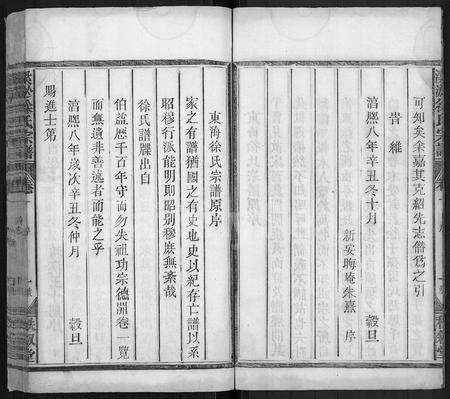 可知矣余嘉其克紹先志僭爲之引
旹維
淯熈八年辛丑冬十月 穀旦
新安晦庵朱熹 序
東海徐氏宗譜原序
家之有譜猶國之有史也史以紀存亡譜以系
昭穆行派能明則昭别穆庶無紊哉
徐氏譜牒出自
伯益歴千百年守而勿失祖功宗德淵卷一覽
而無遺非善述者而能之乎
淯熈八年歲次辛丑冬仲月 穀旦
賜進士第
徐氏宗譜